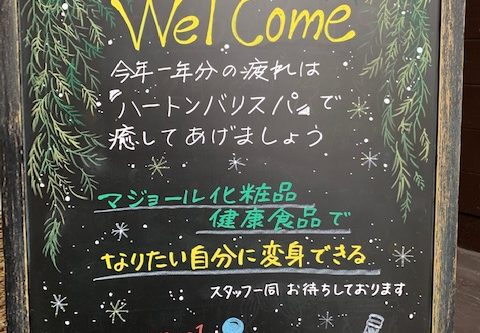 Welcome
今年一年分の疲れは
『ハートンバリスパ』で
癒してあげましょう
マジョール化粧品
健康食品で
なりたい自分に変身できる
スタッフ一同 お待ちしております